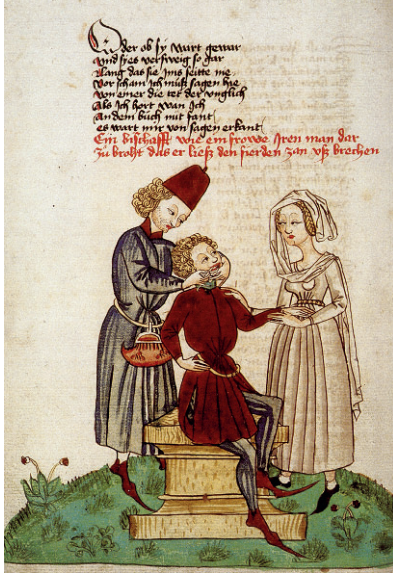 Oder ob sy wart gewar
vnd syes versweig so gar
Lang das sie Ims seitte nie
Vor scham Ich musz sagen hie
von einer die tet der vnglich
Als Ich hort wan Ich
An dem buch nut fant
es wart mir von sagen erkant
Ein bischafft wie ein frowe Iren man dar
zu broht das er liesz den fierden zan vsz brechen